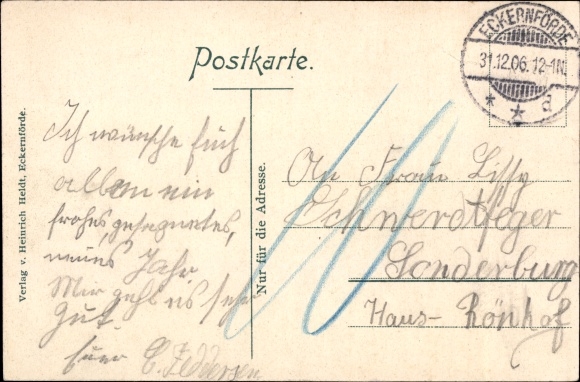 Postkarte.
ECKERNFÖRDE
31.12.06. 12-1N.
* * d
Verlag v. Heinrich Heldt, Eckernförde.
Nur für die Adresse.
Ich wünsche Euch
allen ein
frohes, gesegnetes,
neues Jahr
Mir geht es sehr
gut.
Euer C. Feddersen
An Frau Lissy
Schwerdtfeger
Sonderburg
Haus- Rönhof
10